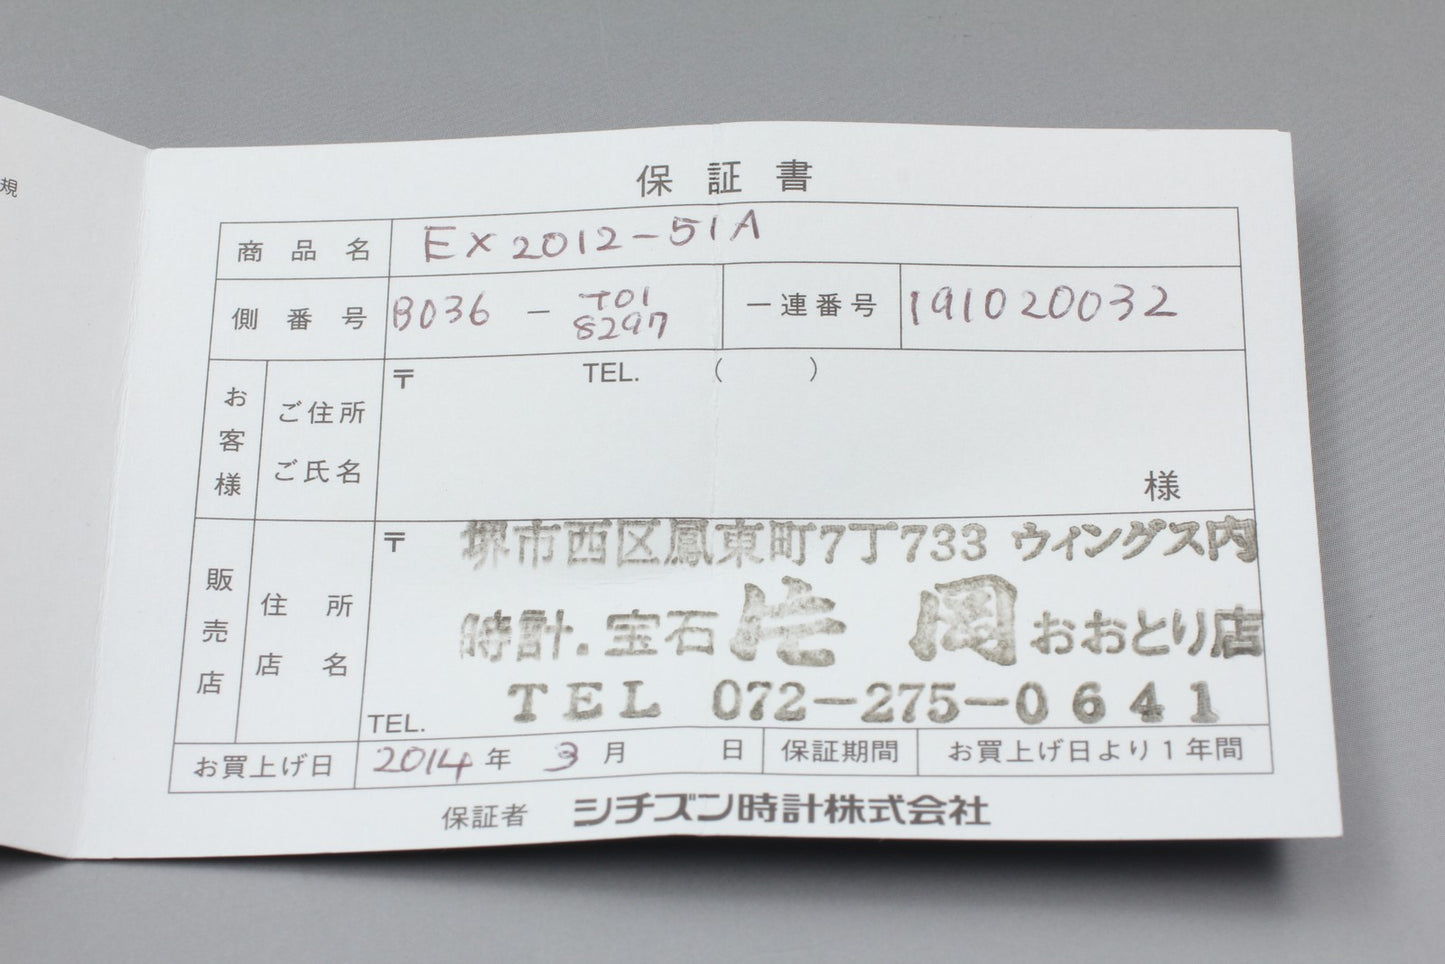 規
保証書
商品名 EX2012-51A
側番号 B036 - T01 8297 一連番号 191020032
お客様 ご住所 ご氏名 〒 TEL. ( )
様
販売店 住所 店名 〒 堺市西区鳳東町7丁733 ウィングス内
時計.宝石 片岡 おおとり店
TEL. TEL 072-275-0641
お買上げ日 2014年 3月 日 保証期間 お買上げ日より1年間
保証者 シチズン時計株式会社